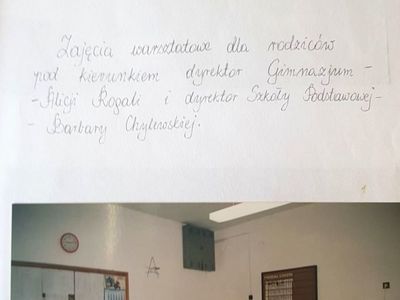 Zajęcia warsztatowe dla rodziców
pod kierunkiem dyrektor Gimnazjum -
- Alicji Rogali i dyrektor Szkoły Podstawowej -
- Barbary Chylewskiej.
1